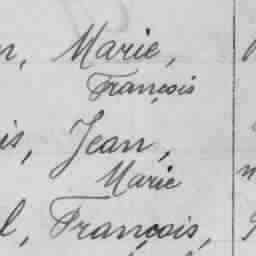 n, Marie,
François
is, Jean,
Marie
l, François,